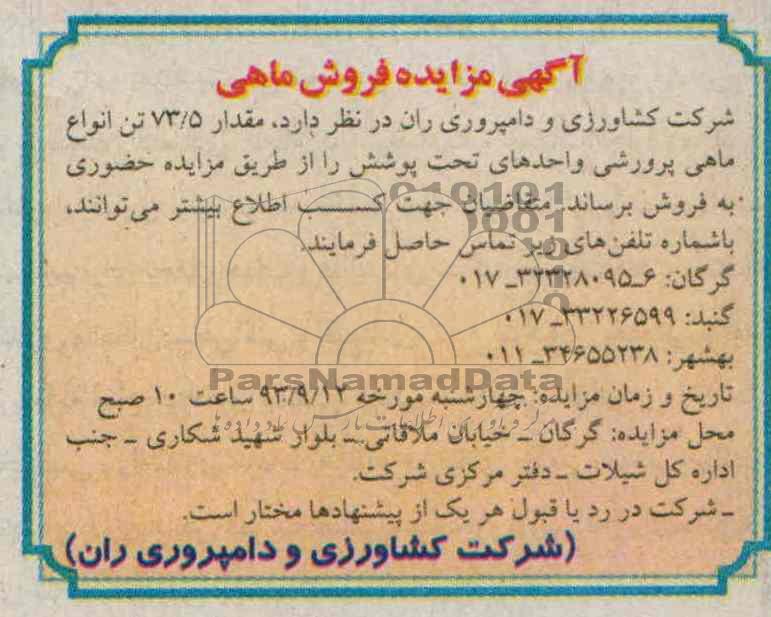 آگهی مزایده فروش ماهی
شرکت کشاورزی و دامپروری ران در نظر دارد، مقدار ۷۳/۵ تن انواع
ماهی پرورشی واحدهای تحت پوشش را از طریق مزایده حضوری
به فروش برساند. متقاضیان جهت کسب اطلاع بیشتر می‌توانند،
باشماره تلفن‌های زیر تماس حاصل فرمایند.
گرگان: ۶ـ۳۲۳۲۸۰۹۵ـ ۰۱۷
گنبد: ۳۳۲۲۶۵۹۹ـ ۰۱۷
بهشهر: ۳۴۶۵۵۲۳۸ـ ۰۱۱
ParsNamadData
تاریخ و زمان مزایده: چهارشنبه مورخه ۹۳/۹/۱۲ ساعت ۱۰ صبح
محل مزایده: گرگان ـ خیابان ملاقاتی ـ بلوار شهید شکاری ـ جنب
اداره کل شیلات ـ دفتر مرکزی شرکت.
ـ شرکت در رد یا قبول هر یک از پیشنهادها مختار است.
(شرکت کشاورزی و دامپروری ران)